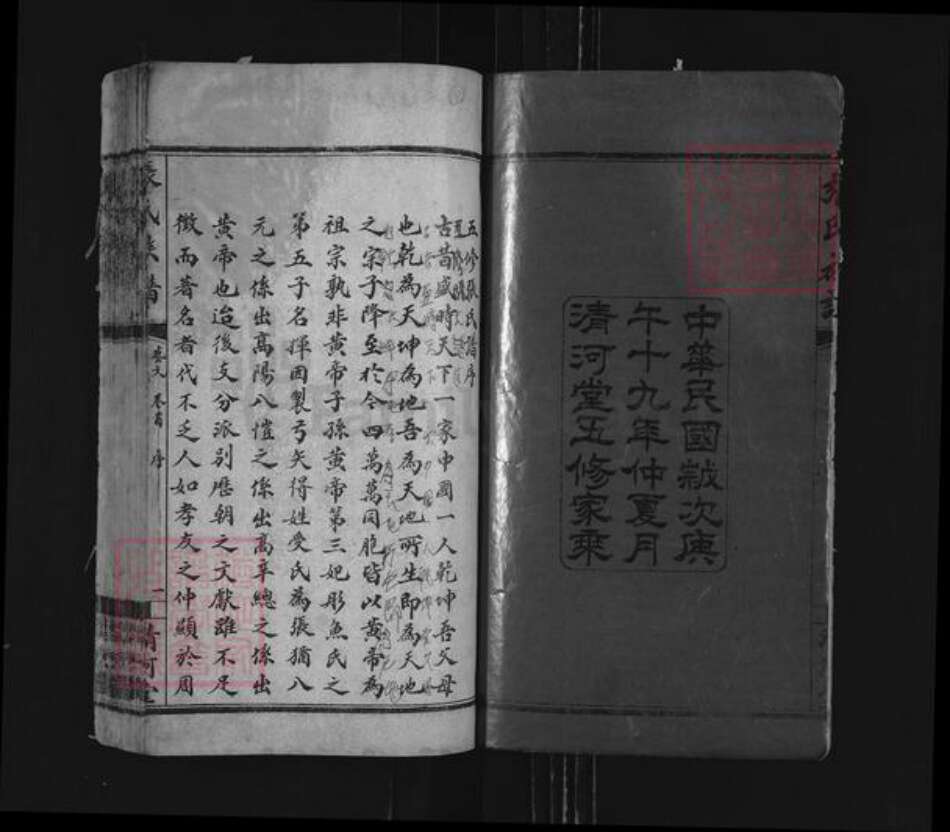 中華民國歲次庚
午十九年仲夏月
清河堂五修家乘
五修張氏譜序
古昔盛時天下一家中國一人乾坤吾父母
也乾為天坤為地吾為天地所生即為天地
之宗子降至於今四萬萬同胞皆以黃帝為
祖宗孰非黃帝子孫黃帝第三妃彤魚氏之
第五子名揮因製弓矢得姓受氏為張猶八
元之係出高陽八愷之係出高辛總之係出
黃帝也迨後支分派別歷朝之文獻雖不足
徵而著名者代不乏人如孝友之仲顯於周
張氏族譜
藝文 卷首 序
一
清河堂